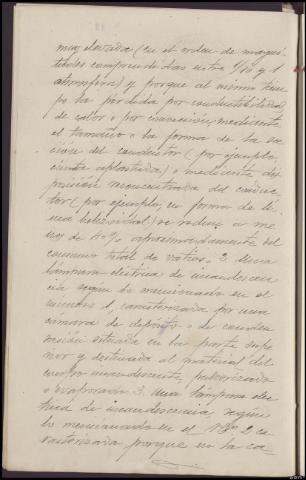 muy elevada (en el orden de magni-
tudes comprendidas entre 1/10 y 1
atmosfera) y porque al mismo tiem-
po la pérdida por conductibilidad
de calor o por convección, mediante
el tamaño o la forma de la sec-
ción del conductor (por ejemplo,
cinta aplastada) o mediante dis-
posición reconcentrada del conduc-
tor (por ejemplo, en forma de lí-
nea helizoidal) se reduce a me-
nos de 40% aproximadamente del
consumo total de vatios. 2 Una
lámpara electrica de incandescen-
cia según lo mencionado en el
número 1, caracterizada por una
cámara de depósito o de conden-
sación situada en la parte supe-
rior y destinada al material del
cuerpo incandescente, pulverizado
o evaporado. 3. Una lámpara elec-
trica de incandescencia, según
lo mencionado en el Nº 2 ca-
racterizada porque en la ca-